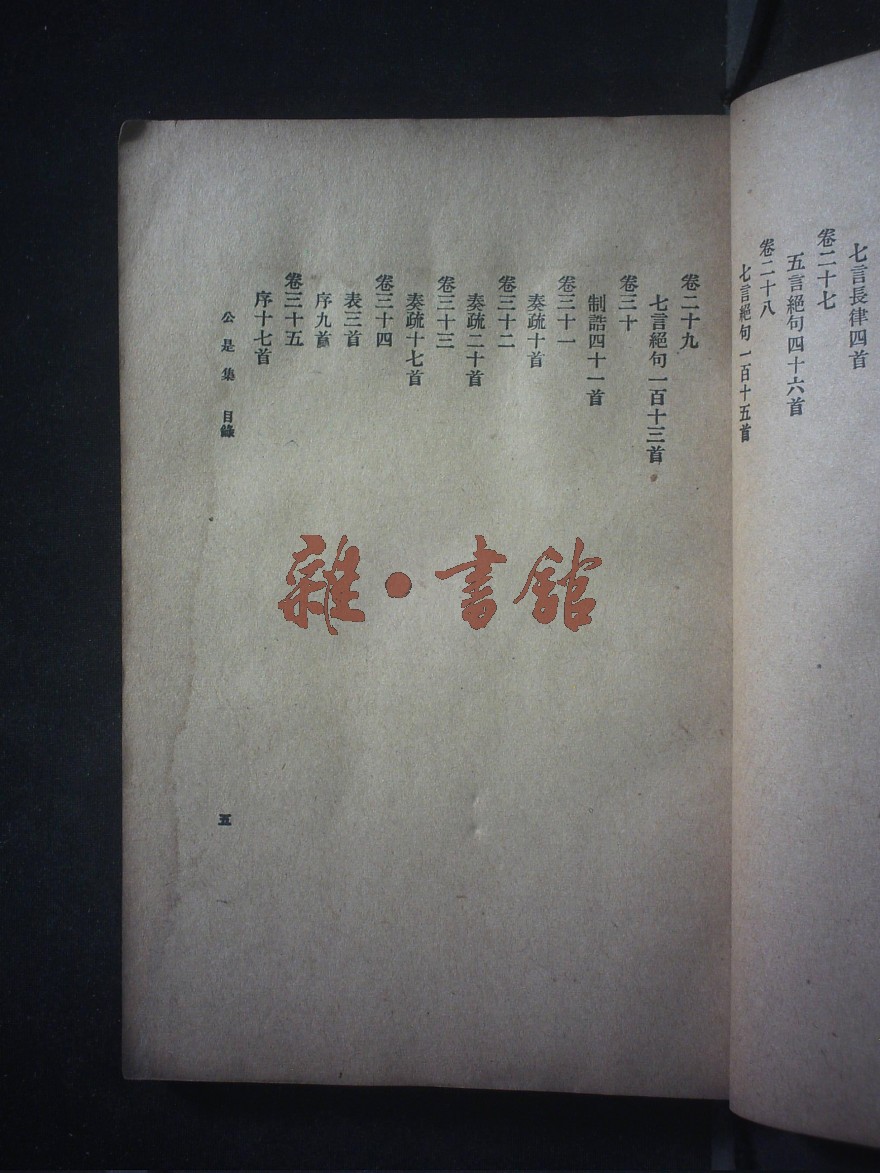 七言長律四首
卷二十七
五言絕句四十六首
卷二十八
七言絕句一百十五首
卷二十九
七言絕句一百十三首
卷三十
制誥四十一首
卷三十一
奏疏十首
卷三十二
奏疏二十首
卷三十三
奏疏十七首
卷三十四
表三首
序九首
卷三十五
序十七首
公是集 目錄
五
雜·書館